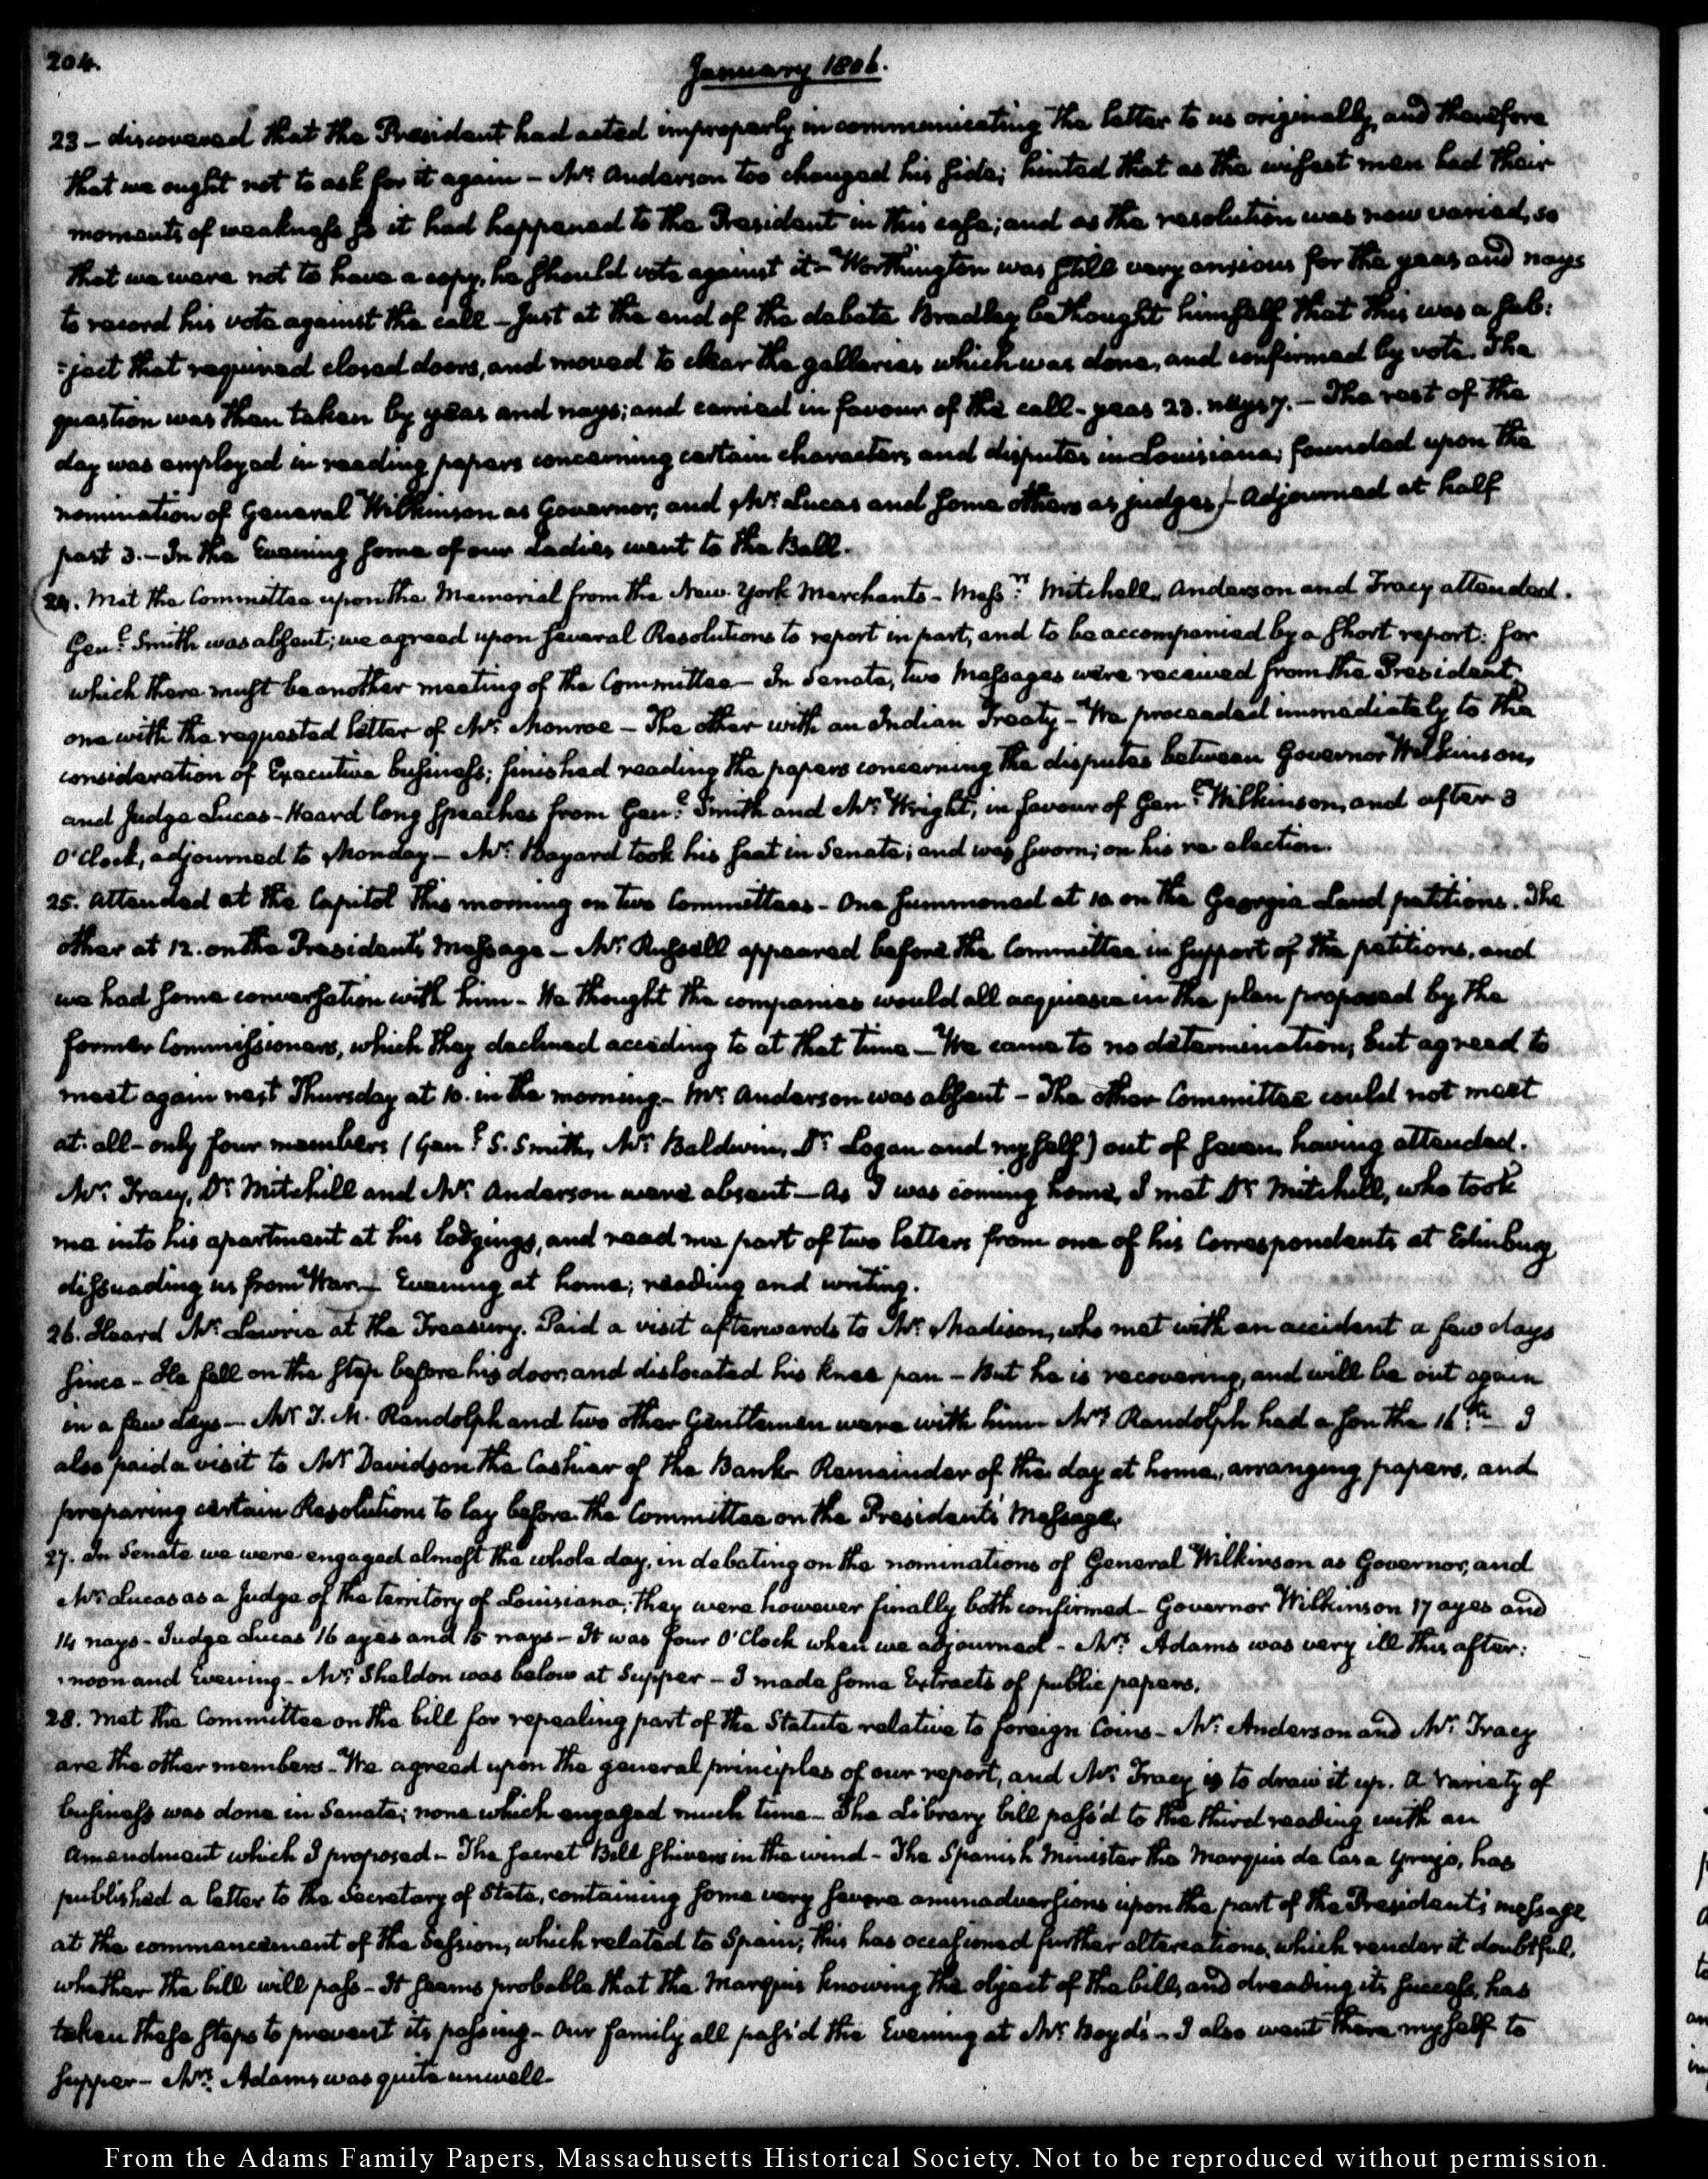 204.
January 1806.
23 – discovered that the President had acted improperly in communicating the letter to us originally, and therefore
that we ought not to ask for it again – Mr. Anderson too changed his side; hinted that as the wisest men had their
moments of weakness so it had happened to the President in this case; and as the resolution was now varied, so
that we were not to have a copy, he should vote against it – Worthington was still very anxious for the yeas and nays
to record his vote against the call – Just at the end of the debate Bradley bethought himself that this was a sub:
:ject that required closed doors, and moved to clear the galleries which was done, and confirmed by vote. The
question was then taken by yeas and nays; and carried in favour of the call – yeas 23. nays 7. – The rest of the
day was employed in reading papers concerning certain characters and disputes in Louisiana; founded upon the
nomination of General Wilkinson as Governor, and Mr. Lucas and some others as judges) – Adjourned at half
past 3. – In the Evening some of our Ladies went to the Ball.
24. Met the Committee upon the Memorial from the New-York Merchants – Messrs. Mitchell, Anderson and Tracy attended.
Genl. Smith was absent; we agreed upon several Resolutions to report in part, and to be accompanied by a short report: for
which there must be another meeting of the Committee – In Senate, two Messages were received from the President
one with the requested letter of Mr. Monroe – The other with an Indian Treaty – We proceeded immediately to the
consideration of Executive business; finished reading the papers concerning the disputes between Governor Wilkinson,
and Judge Lucas – Heard long speeches from Genl. Smith and Mr. Wright, in favour of Genl. Wilkinson, and after 3
O'Clock, adjourned to Monday – Mr. Bayard took his seat in Senate; and was sworn; on his re election.
25. Attended at the Capitol this morning on two Committees – One summoned at 10 on the Georgia Land petitions. The
other at 12. on the President's Message – Mr. Russell appeared before the Committee in support of the petitions, and
we had some conversation with him – He thought the companies would all acquiesce in the plan proposed by the
former Commissioners, which they declined acceding to at that time – We came to no determination; but agreed to
meet again next Thursday at 10. in the morning – Mr. Anderson was absent – The other Committee could not meet
at all – only four members (Genl. S. Smith, Mr. Baldwin, Dr. Logan and myself) out of seven, having attended.
Mr. Tracy, Dr. Mitchill and Mr. Anderson were absent – As I was coming home, I met Dr. Mitchill, who took
me into his apartment at his lodgings, and read me part of two letters from one of his Correspondents at Edinburg
dissuading us from War – Evening at home; reading and writing.
26. Heard Mr. Lowrie at the Treasury. Paid a visit afterwards to Mr. Madison, who met with an accident a few days
since – He fell on the step before his door and dislocated his knee pan – But he is recovering, and will be out again
in a few days – Mr. T. M. Randolph and two other Gentlemen were with him Mrs. Randolph had a son the 16th – I
also paid a visit to Mr. Davidson the Cashier of the Bank – Remainder of the day at home, arranging papers, and
preparing certain Resolutions to lay before the Committee on the President's Message.
27. In Senate we were engaged almost the whole day, in debating on the nominations of General Wilkinson as Governor, and
Mr. Lucas as a Judge of the territory of Louisiana; they were however finally both confirmed – Governor Wilkinson 17 ayes and
14 nays – Judge Lucas 16 ayes and 15 nays – It was four O'Clock when we adjourned – Mrs. Adams was very ill this after:
:noon and Evening – Mr. Sheldon was below at Supper – I made some Extracts of public papers.
28. Met the Committee on the bill for repealing part of the Statute relative to foreign Coins – Mr. Anderson and Mr. Tracy
are the other members – We agreed upon the general principles of our report, and Mr. Tracy is to draw it up. A Variety of
business was done in Senate; none which engaged much time – The Library bill pass'd to the third reading with an
Amendment which I proposed – The secret Bill shivers in the wind – The Spanish Minister the Marquis de Casa Yrujo, has
published a letter to the Secretary of State, containing some very severe animadversions upon the part of the President's message
at the commencement of the Session, which related to Spain; this has occasioned further altercations, which render it doubtful,
whether the bill will pass – It seems probable that the Marquis knowing the object of the bill, and dreading its success, has
taken these steps to prevent its passing – Our family all pass'd the Evening at Mr. Boyd's – I also went there myself to
supper – Mrs. Adams was quite unwell –
From the Adams Family Papers, Massachusetts Historical Society. Not to be reproduced without permission.